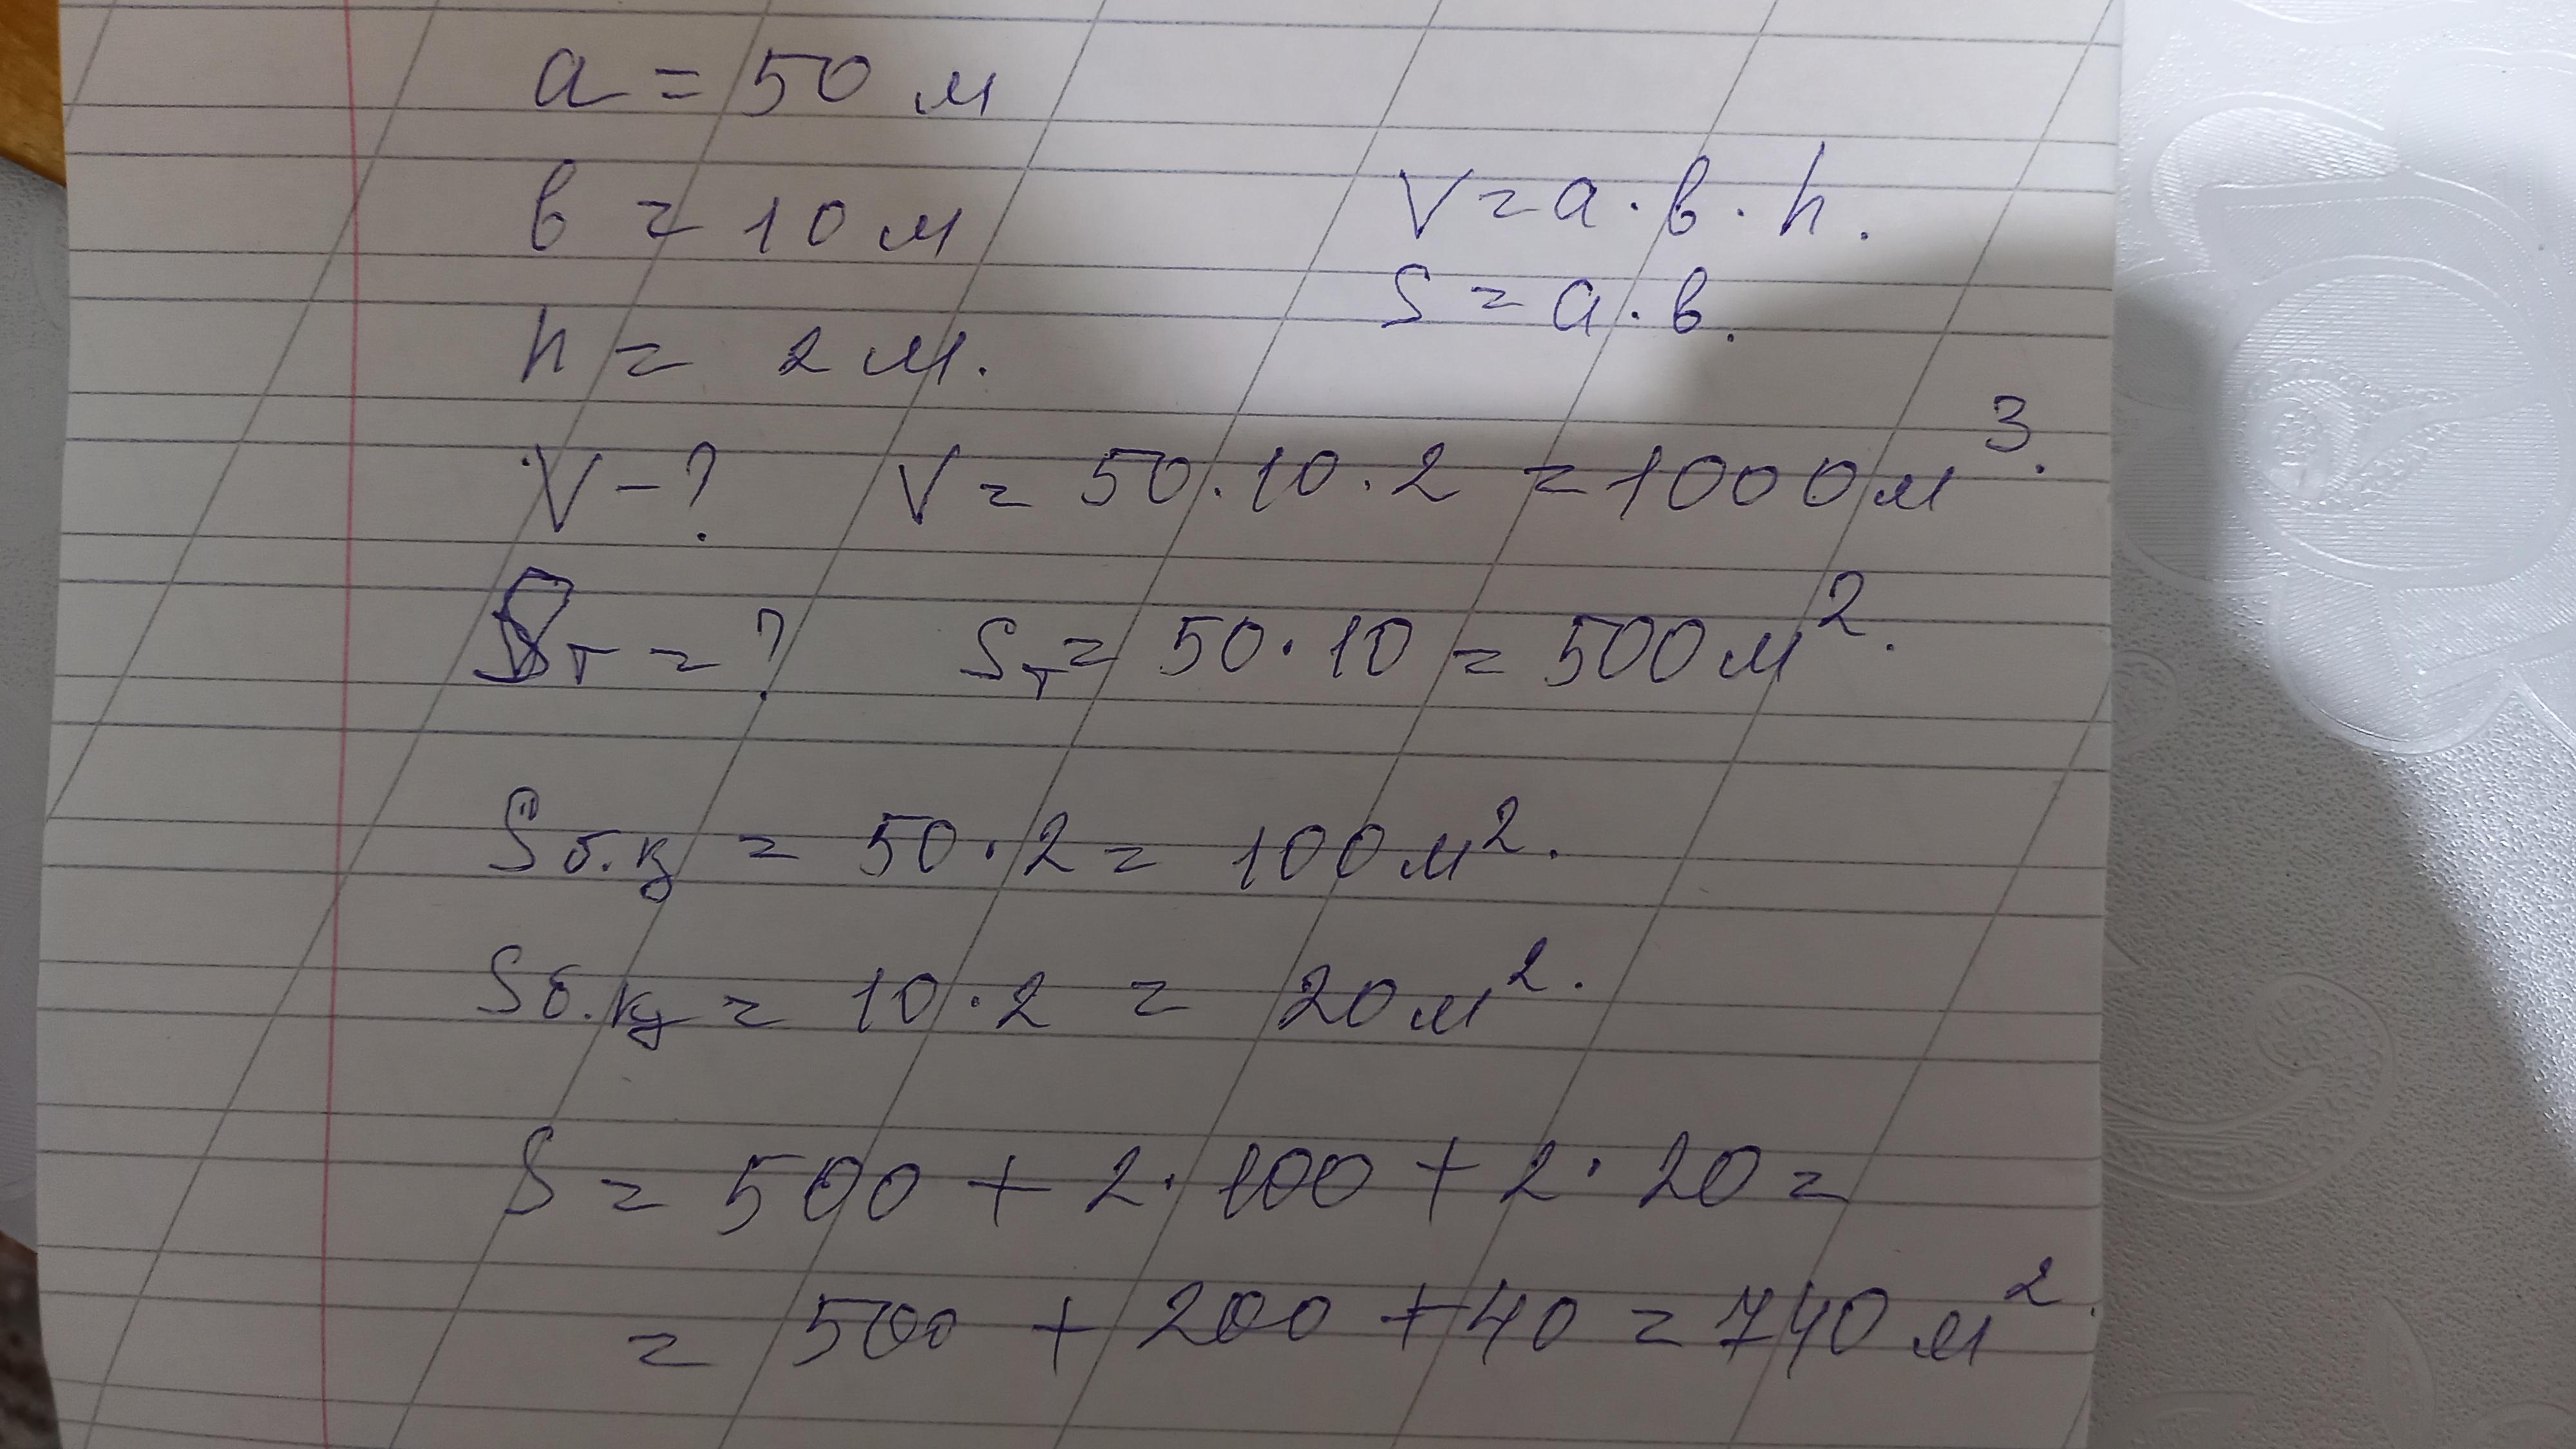 a = 50 м
в = 10 м
V = a · в · h.
S = a · в.
h = 2 м.
V - ? V = 50 · 10 · 2 = 1000 м³.
Sт = ? Sт = 50 · 10 = 500 м².
Sб.қ = 50 · 2 = 100 м².
Sб.қ = 10 · 2 = 20 м².
S = 500 + 2 · 100 + 2 · 20 =
= 500 + 200 + 40 = 740 м².